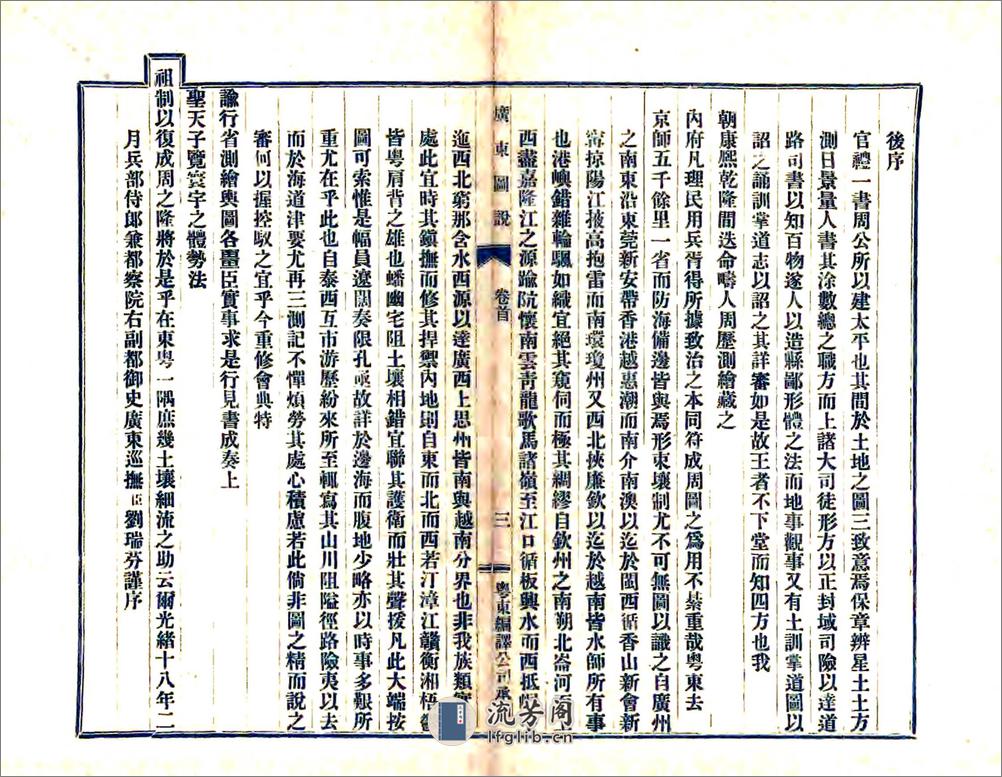 後序
官禮一書周公所以建太平也其間於土地之圖三致意焉保章辨星土土方
測日景量人書其涂數總之職方而上諸大司徒形方以正封域司險以達道
路司書以知百物遂人以造縣鄙形體之法而地事觀事又有土訓掌道圖以
詔之誦訓掌道志以詔之其詳審如是故王者不下堂而知四方也我
朝康熙乾隆間迭命疇人周歷測繪藏之
內府凡理民用兵胥得所據致治之本同符成周圖之為用不綦重哉粵東去
京師五千餘里一省而防海備邊皆與焉形束壤制尤不可無圖以識之自廣州
之南東沿東莞新安帶香港越惠潮而南介南澳以迄於閩西循香山新會新
寧掠陽江掖高抱雷而南環瓊州又西北挾廉欽以迄於越南皆水師所有事
也港嶼錯雜輪颿如織宜絕其窺伺而極其綢繆自欽州之南朔北崙河
西盡嘉隆江之源踰阬懷南雲青龍歌馬諸嶺至江口循板興水而西抵
廣東圖說
卷首
三
粵東編譯公司承
迤西北窮那含水西源以達廣西上思州皆南與越南分界也非我族類
處此宜時其鎮撫而修其捍禦內地則自東而北而西若汀漳江贛衡湘梧
皆粵肩背之雄也蟠幽宅阻土壤相錯宜聯其護衛而壯其聲援凡此大端按
圖可索惟是幅員遼闊奏限孔亟故詳於邊海而腹地少略亦以時事多艱所
重尤在乎此也自泰西互市游歷紛來所至輒寫其山川阻隘徑路險夷以去
而於海道津要尤再三測記不憚煩勞其處心積慮若此倘非圖之精而說之
審何以握控馭之宜乎今重修會典特
諭行省測繪輿圖各疆臣實事求是行見書成奏上
聖天子覽寰宇之體勢法
祖制以復成周之隆將於是乎在東粵一隅庶幾土壤細流之助云爾光緒十八年二
月兵部侍郎兼都察院右副都御史廣東巡撫臣劉瑞芬謹序
流芳閣
lfglib.cn